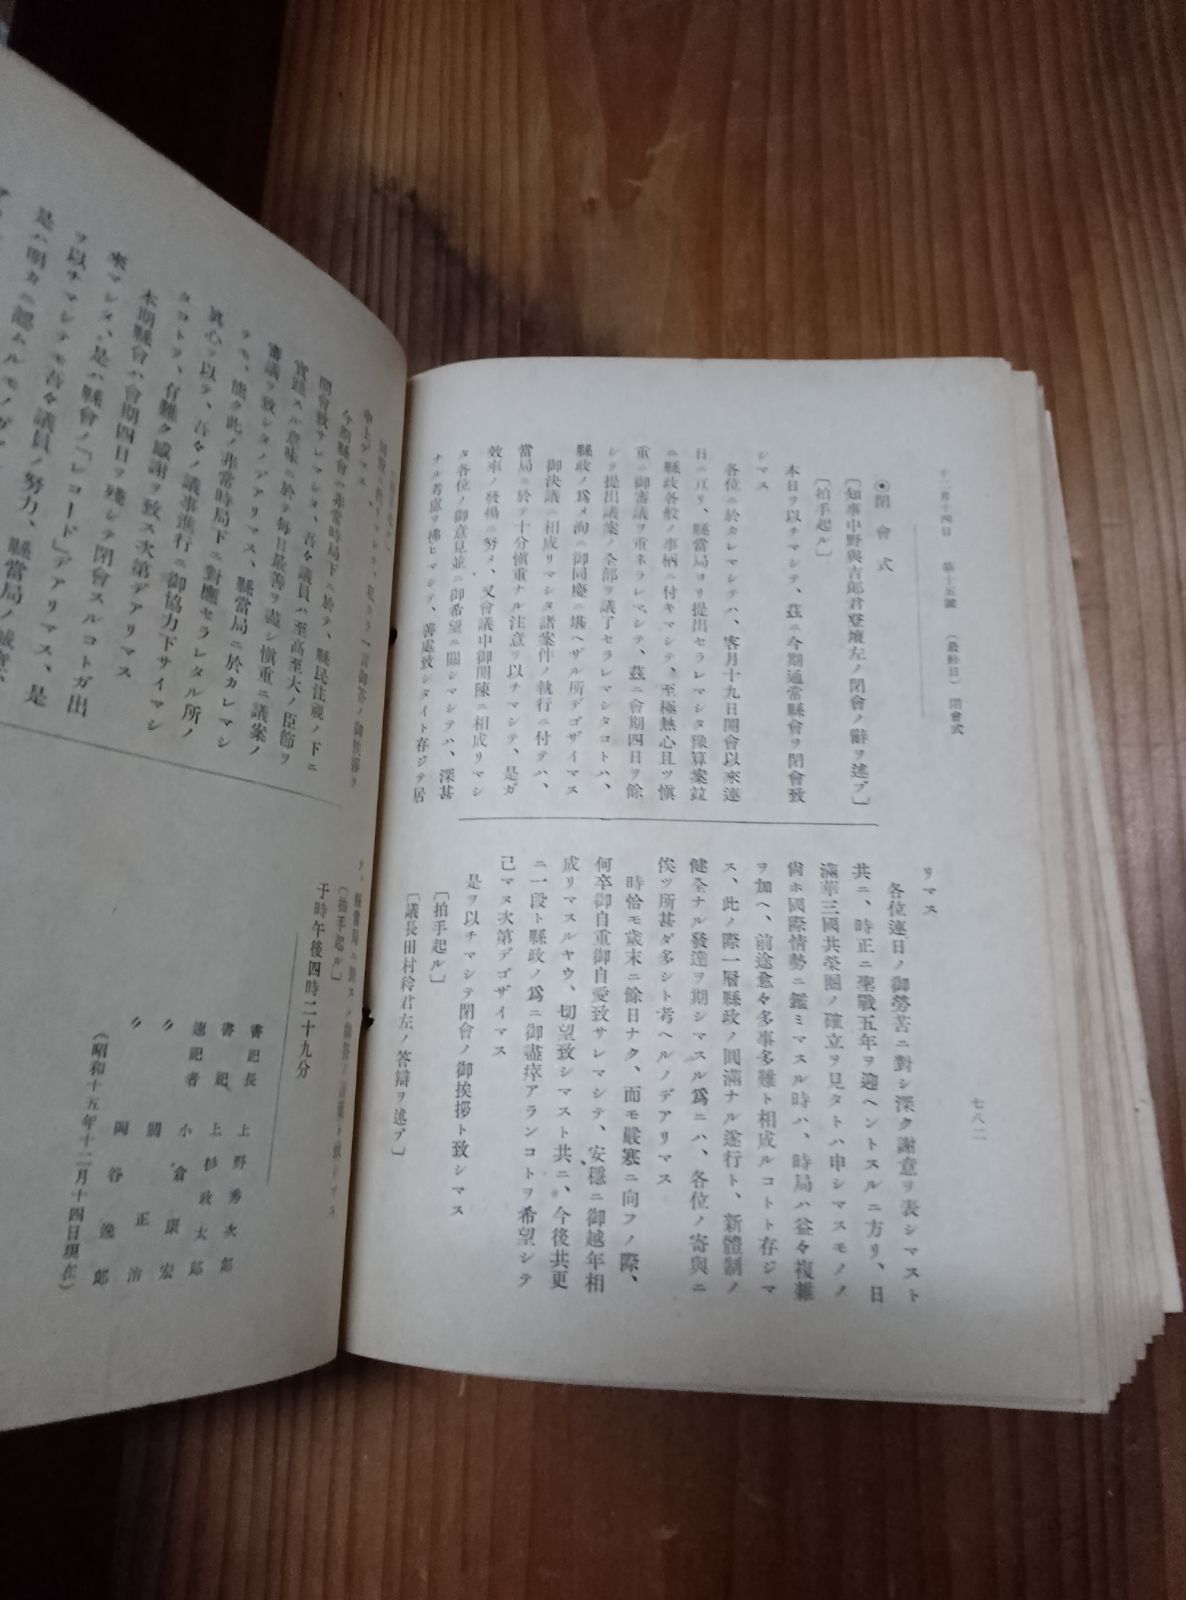 十二月十四日　第十五號　（最終日）　閉會式
七八二
◉閉會式
〔知事中野與吉郎君登壇左ノ閉會ノ辭ヲ述ブ〕
〔拍手起ル〕
本日ヲ以チマシテ、茲ニ今期通常縣會ヲ閉會致
シマス
各位ニ於カレマシテハ、客月十九日開會以來連
日ニ亘リ、縣當局ヨリ提出セラレマシタ豫算案竝
ニ縣政各般ノ事柄ニ付キマシテ、至極熱心且ツ愼
重ニ御審議ヲ重ネラレマシテ、茲ニ會期四日ヲ餘
シテ提出議案ノ全部ヲ議了セラレマシタコトハ、
縣政ノ爲メ洵ニ御同慶ニ堪ヘザル所デゴザイマス
御決議ニ相成リマシタ諸案件ノ執行ニ付テハ、
當局ニ於テ十分愼重ナル注意ヲ以チマシテ、是ガ
效率ノ發揚ニ努メ、又會議中御開陳ニ相成リマシ
タ各位ノ御意見並ニ御希望ニ關シマシテハ、深甚
ナル考慮ヲ拂ヒマシテ、善處致シタイト存ジテ居
リマス
各位連日ノ御勞苦ニ對シ深ク謝意ヲ表シマスト
共ニ、時正ニ聖戰五年ヲ迎ヘントスルニ方リ、日
滿華三國共榮圈ノ確立ヲ見タトハ申シマスモノノ
尙ホ國際情勢ニ鑑ミマスル時ハ、時局ハ益々複雜
ヲ加ヘ、前途愈々多事多難ト相成ルコトト存ジマ
ス、此ノ際一層縣政ノ圓滿ナル遂行ト、新體制ノ
健全ナル發達ヲ期シマスル爲ニハ、各位ノ寄與ニ
俟ツ所甚ダ多シト考ヘルノデアリマス
時恰モ歲末ニ餘日ナク、而モ嚴寒ニ向フノ際、
何卒御自重御自愛致サレマシテ、安穩ニ御越年相
成リマスルヤウ、切望致シマスト共ニ、今後共更
ニ一段ト縣政ノ爲ニ御盡瘁アランコトヲ希望シテ
已マヌ次第デゴザイマス
是ヲ以チマシテ閉會ノ御挨拶ト致シマス
〔拍手起ル〕
〔議長田村秢君左ノ答辯ヲ述ブ〕
一言御答ノ御挨拶ヲ
申上ゲマス
今期縣會ハ非常時局下ニ於テ、縣民注視ノ下ニ
開會致サレマシタ、吾々議員ハ至高至大ノ臣節ヲ
實踐スル意味ニ於テ每日最善ヲ盡シ愼重ニ議案ノ
審議ヲ致シタノデアリマス、縣當局ニ於カレマシ
テモ、能ク此ノ非常時局下ニ對應セラレタル所ノ
眞心ヲ以テ、吾々ノ議事進行ニ御協力下サイマシ
タコトヲ、有難ク感謝ヲ致ス次第デアリマス
本期縣會ハ會期四日ヲ殘シテ閉會スルコトガ出
來マシタ、是ハ縣會ノ「レコード」デアリマス、是
ヲ以チマシテモ吾々議員ノ努力、縣當局ノ誠意、
是ハ明カニ認ムルモノガ
〔拍手起ル〕
于時午後四時二十九分
書記長　上野秀次郎
書記　上杉政太郎
速記者　小倉康宏
〃　關正治
〃　岡谷逸郎
（昭和十五年十二月十四日現在）